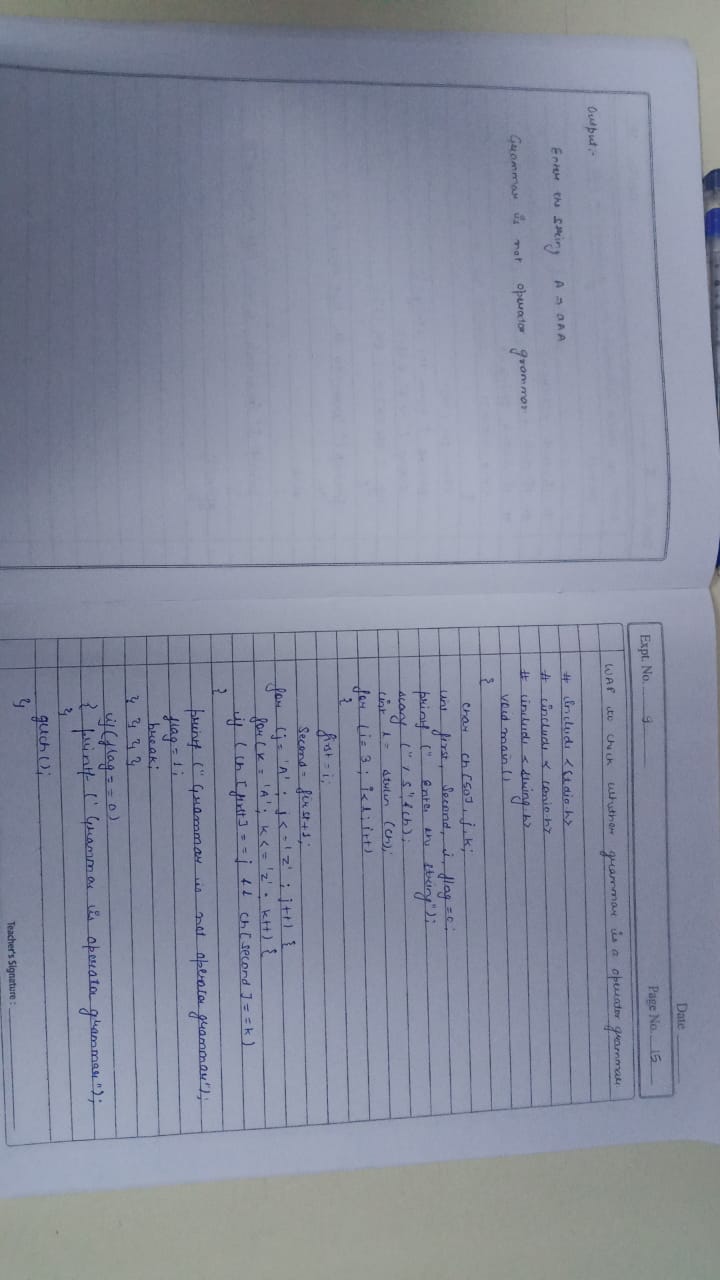 Output:-
Enter the string A → aAA
Grammar is not operator grammar
Date
Expt. No. 9
Page No. 15
WAP to check whether grammar is a operator grammar
# include <stdio.h>
# include < conio.h>
# include < string.h>
void main()
{
char ch[50], j, k;
int first, second, i, flag = 0;
printf (" Enter the string");
scanf (" %s", &ch);
int l = strlen (ch);
for (i = 3 ; i<l ; i++)
{
first = i;
second = first+1;
for (j = 'A' ; j <= 'Z' ; j++) {
for (k = 'A' ; k <= 'Z' ; k++) {
if ( ch [first] == j && ch [second] == k)
{
printf (" Grammar is not operator grammar");
flag = 1;
break;
} } } }
if (flag == 0)
{ printf (" Grammar is operator grammar");
}
getch();
}
Teacher's Signature :